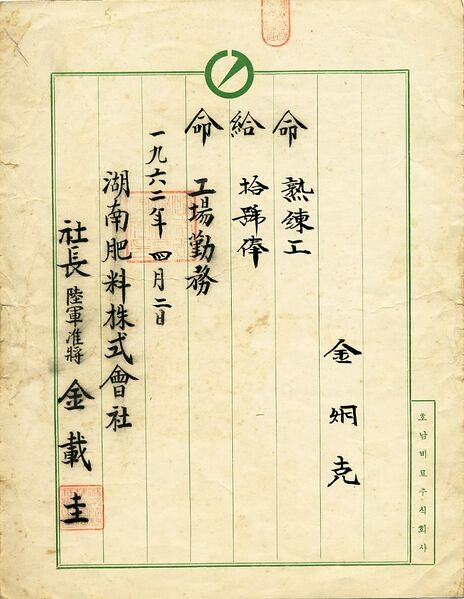 호남비료주식회사
金炯克
命 熟練工
給 拾號俸
命 工場勤務
一九六二年 四月二日
湖南肥料株式會社
社長 陸軍准將 金載圭